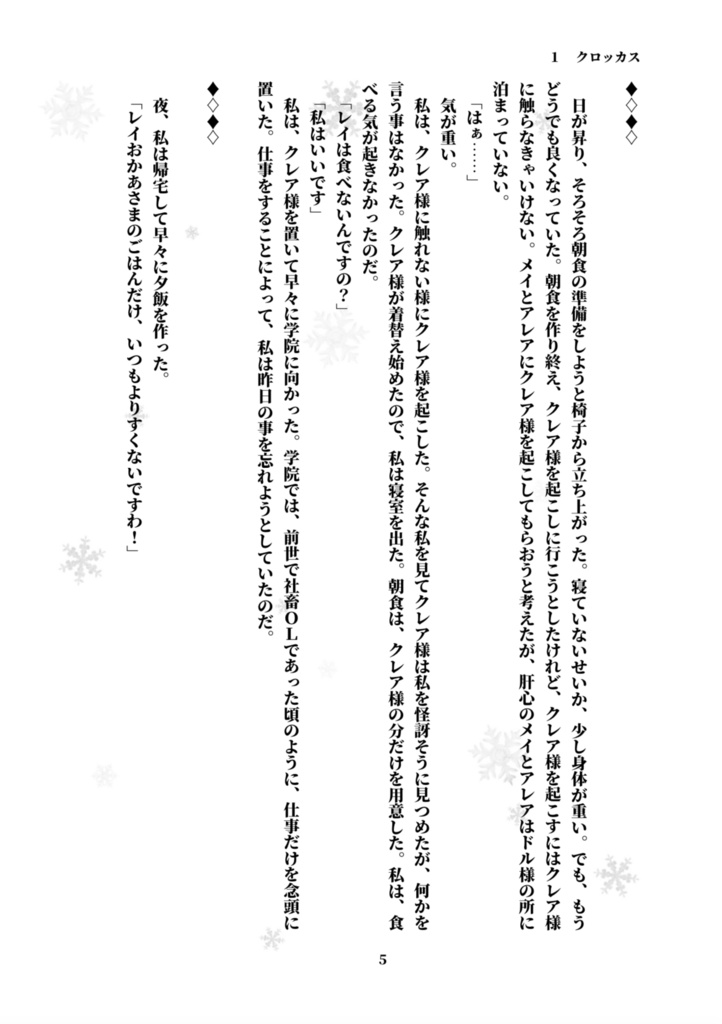 1　クロッカス
◆◇◆◇
　日が昇り、そろそろ朝食の準備をしようと椅子から立ち上がった。寝ていないせいか、少し身体が重い。でも、もう
どうでも良くなっていた。朝食を作り終え、クレア様を起こしに行こうとしたけれど、クレア様を起こすにはクレア様
に触らなきゃいけない。メイとアレアにクレア様を起こしてもらおうと考えたが、肝心のメイとアレアはドル様の所に
泊まっていない。
「はぁ……」
気が重い。
　私は、クレア様に触れない様にクレア様を起こした。そんな私を見てクレア様は私を怪訝そうに見つめたが、何かを
言う事はなかった。クレア様が着替え始めたので、私は寝室を出た。朝食は、クレア様の分だけを用意した。私は、食
べる気が起きなかったのだ。
「レイは食べないんですの？」
「私はいいです」
　私は、クレア様を置いて早々に学院に向かった。学院では、前世で社畜ＯＬであった頃のように、仕事だけを念頭に
置いた。仕事をすることによって、私は昨日の事を忘れようとしていたのだ。
◆◇◆◇
　夜、私は帰宅して早々に夕飯を作った。
「レイおかあさまのごはんだけ、いつもよりすくないですわ！」
5